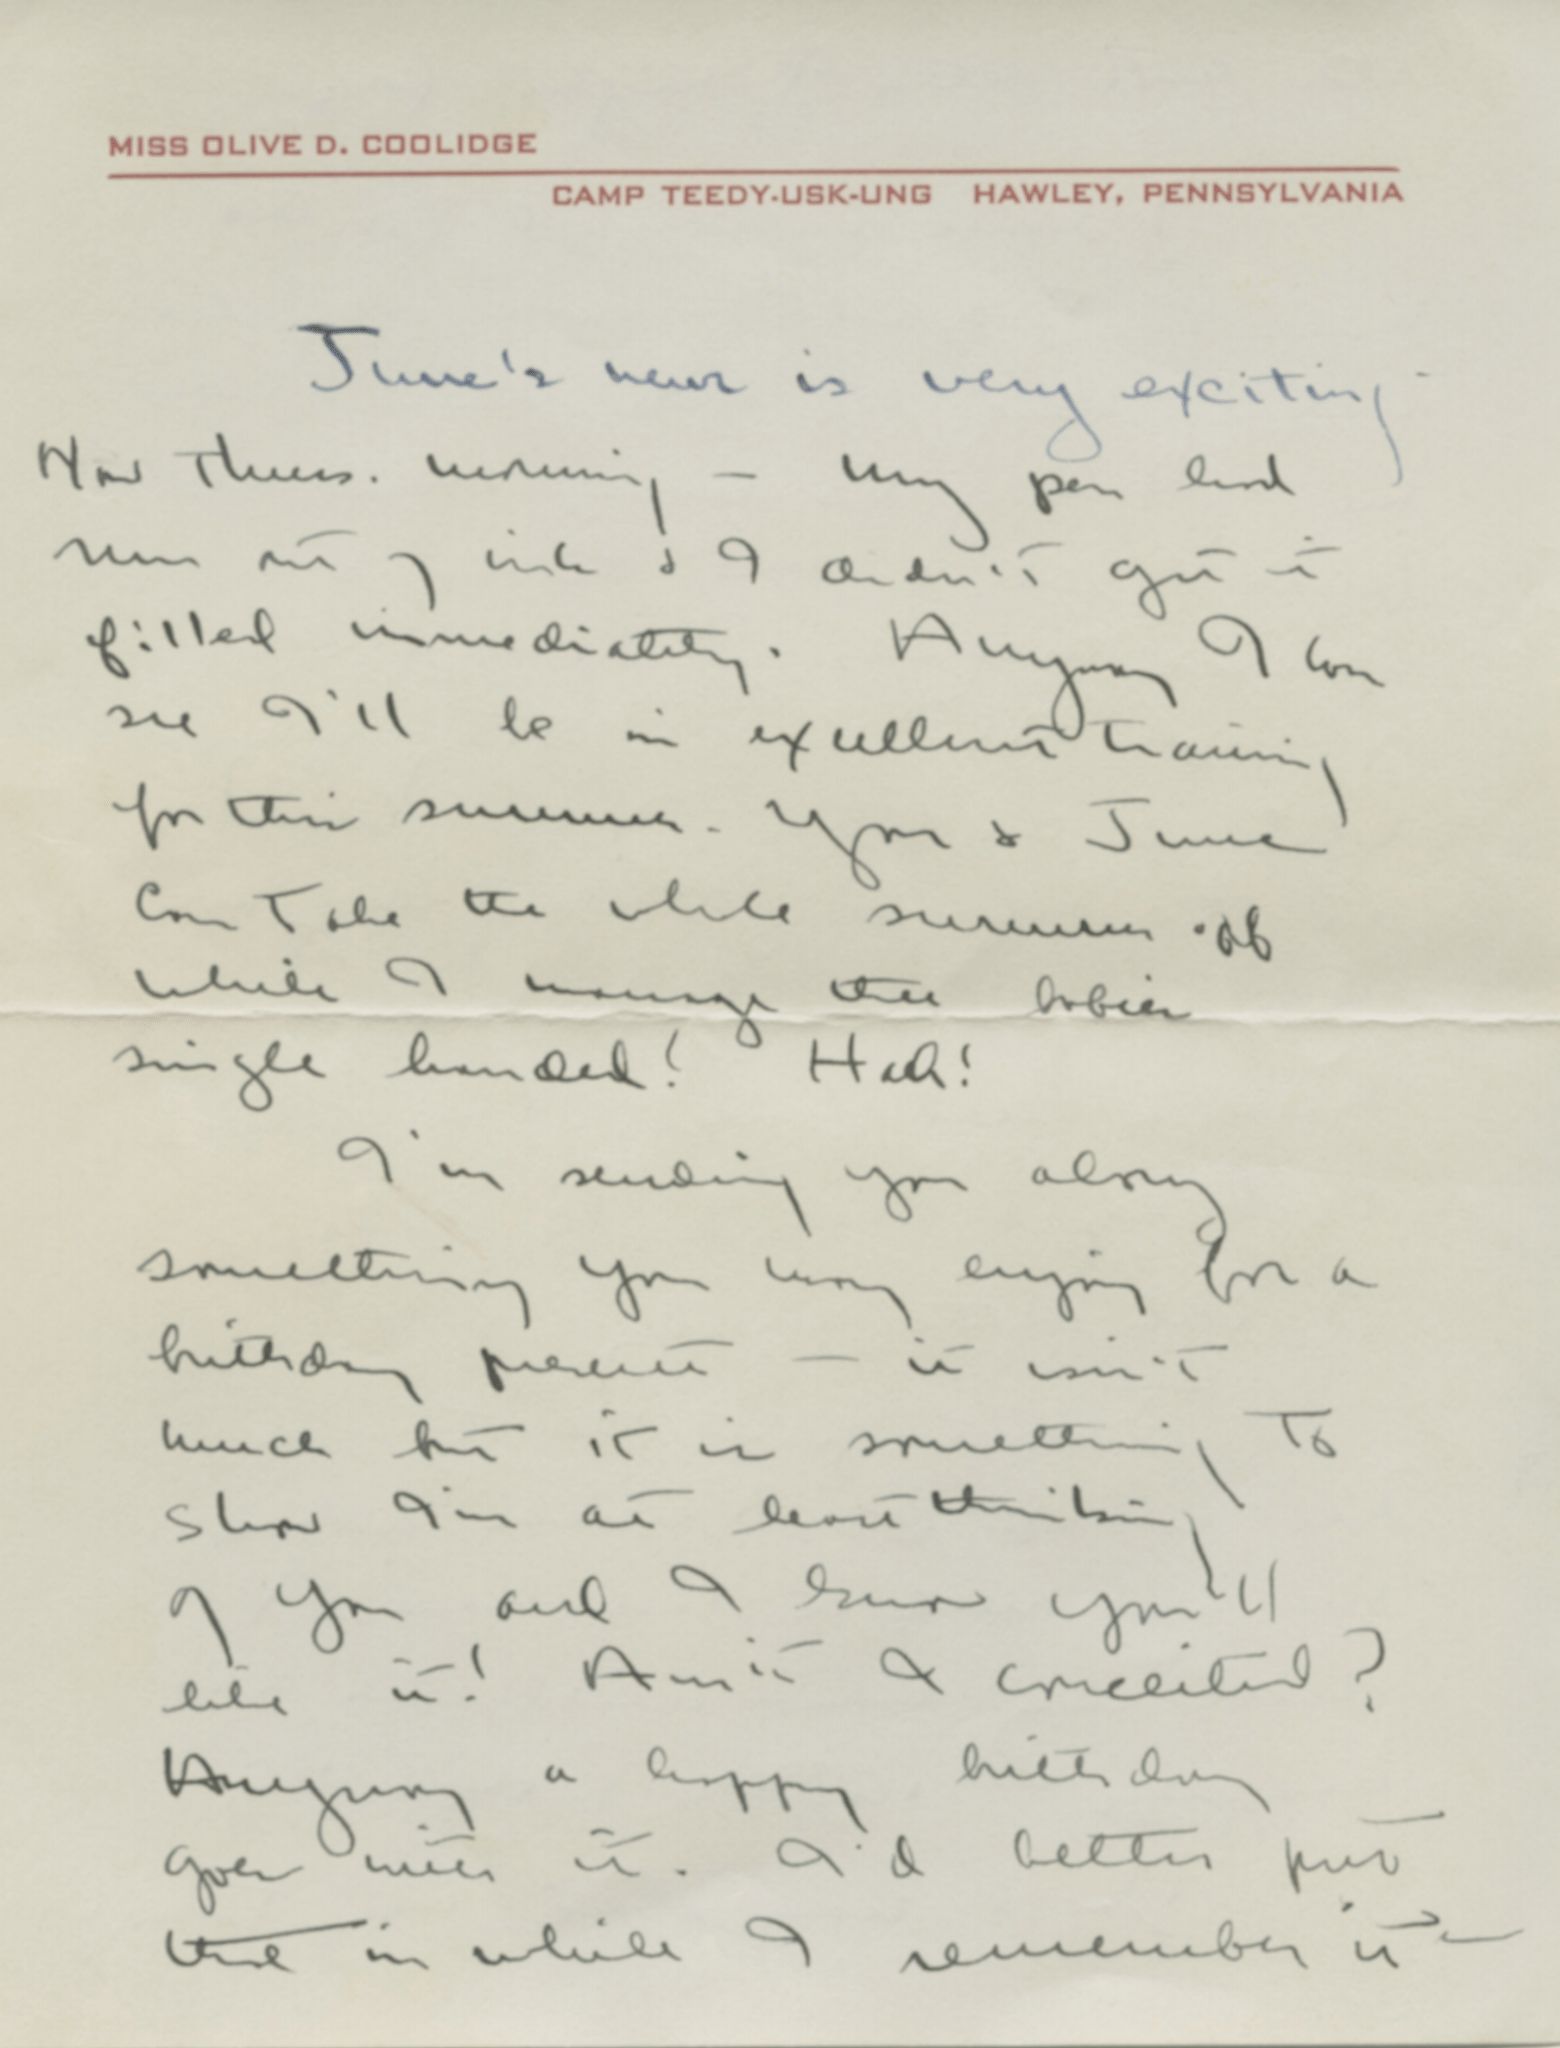 MISS OLIVE D. COOLIDGE
CAMP TEEDY-USK-UNG HAWLEY, PENNSYLVANIA
June's news is very exciting
Now Thurs. morning – my pen had
run out of ink & I didn't get it
filled immediately. Anyway I can
see I'll be in excellent training
for this summer. You & June
can take the whole summer off
while I manage the babies
single handed! Hah!
I'm sending you along
something you may enjoy for a
birthday present – it isn't
much but it is something to
show I'm at least thinking
of you and I know you'll
like it! Ain't I conceited?
Anyway a happy birthday
goes with it. I'd better put
that in while I remember it –